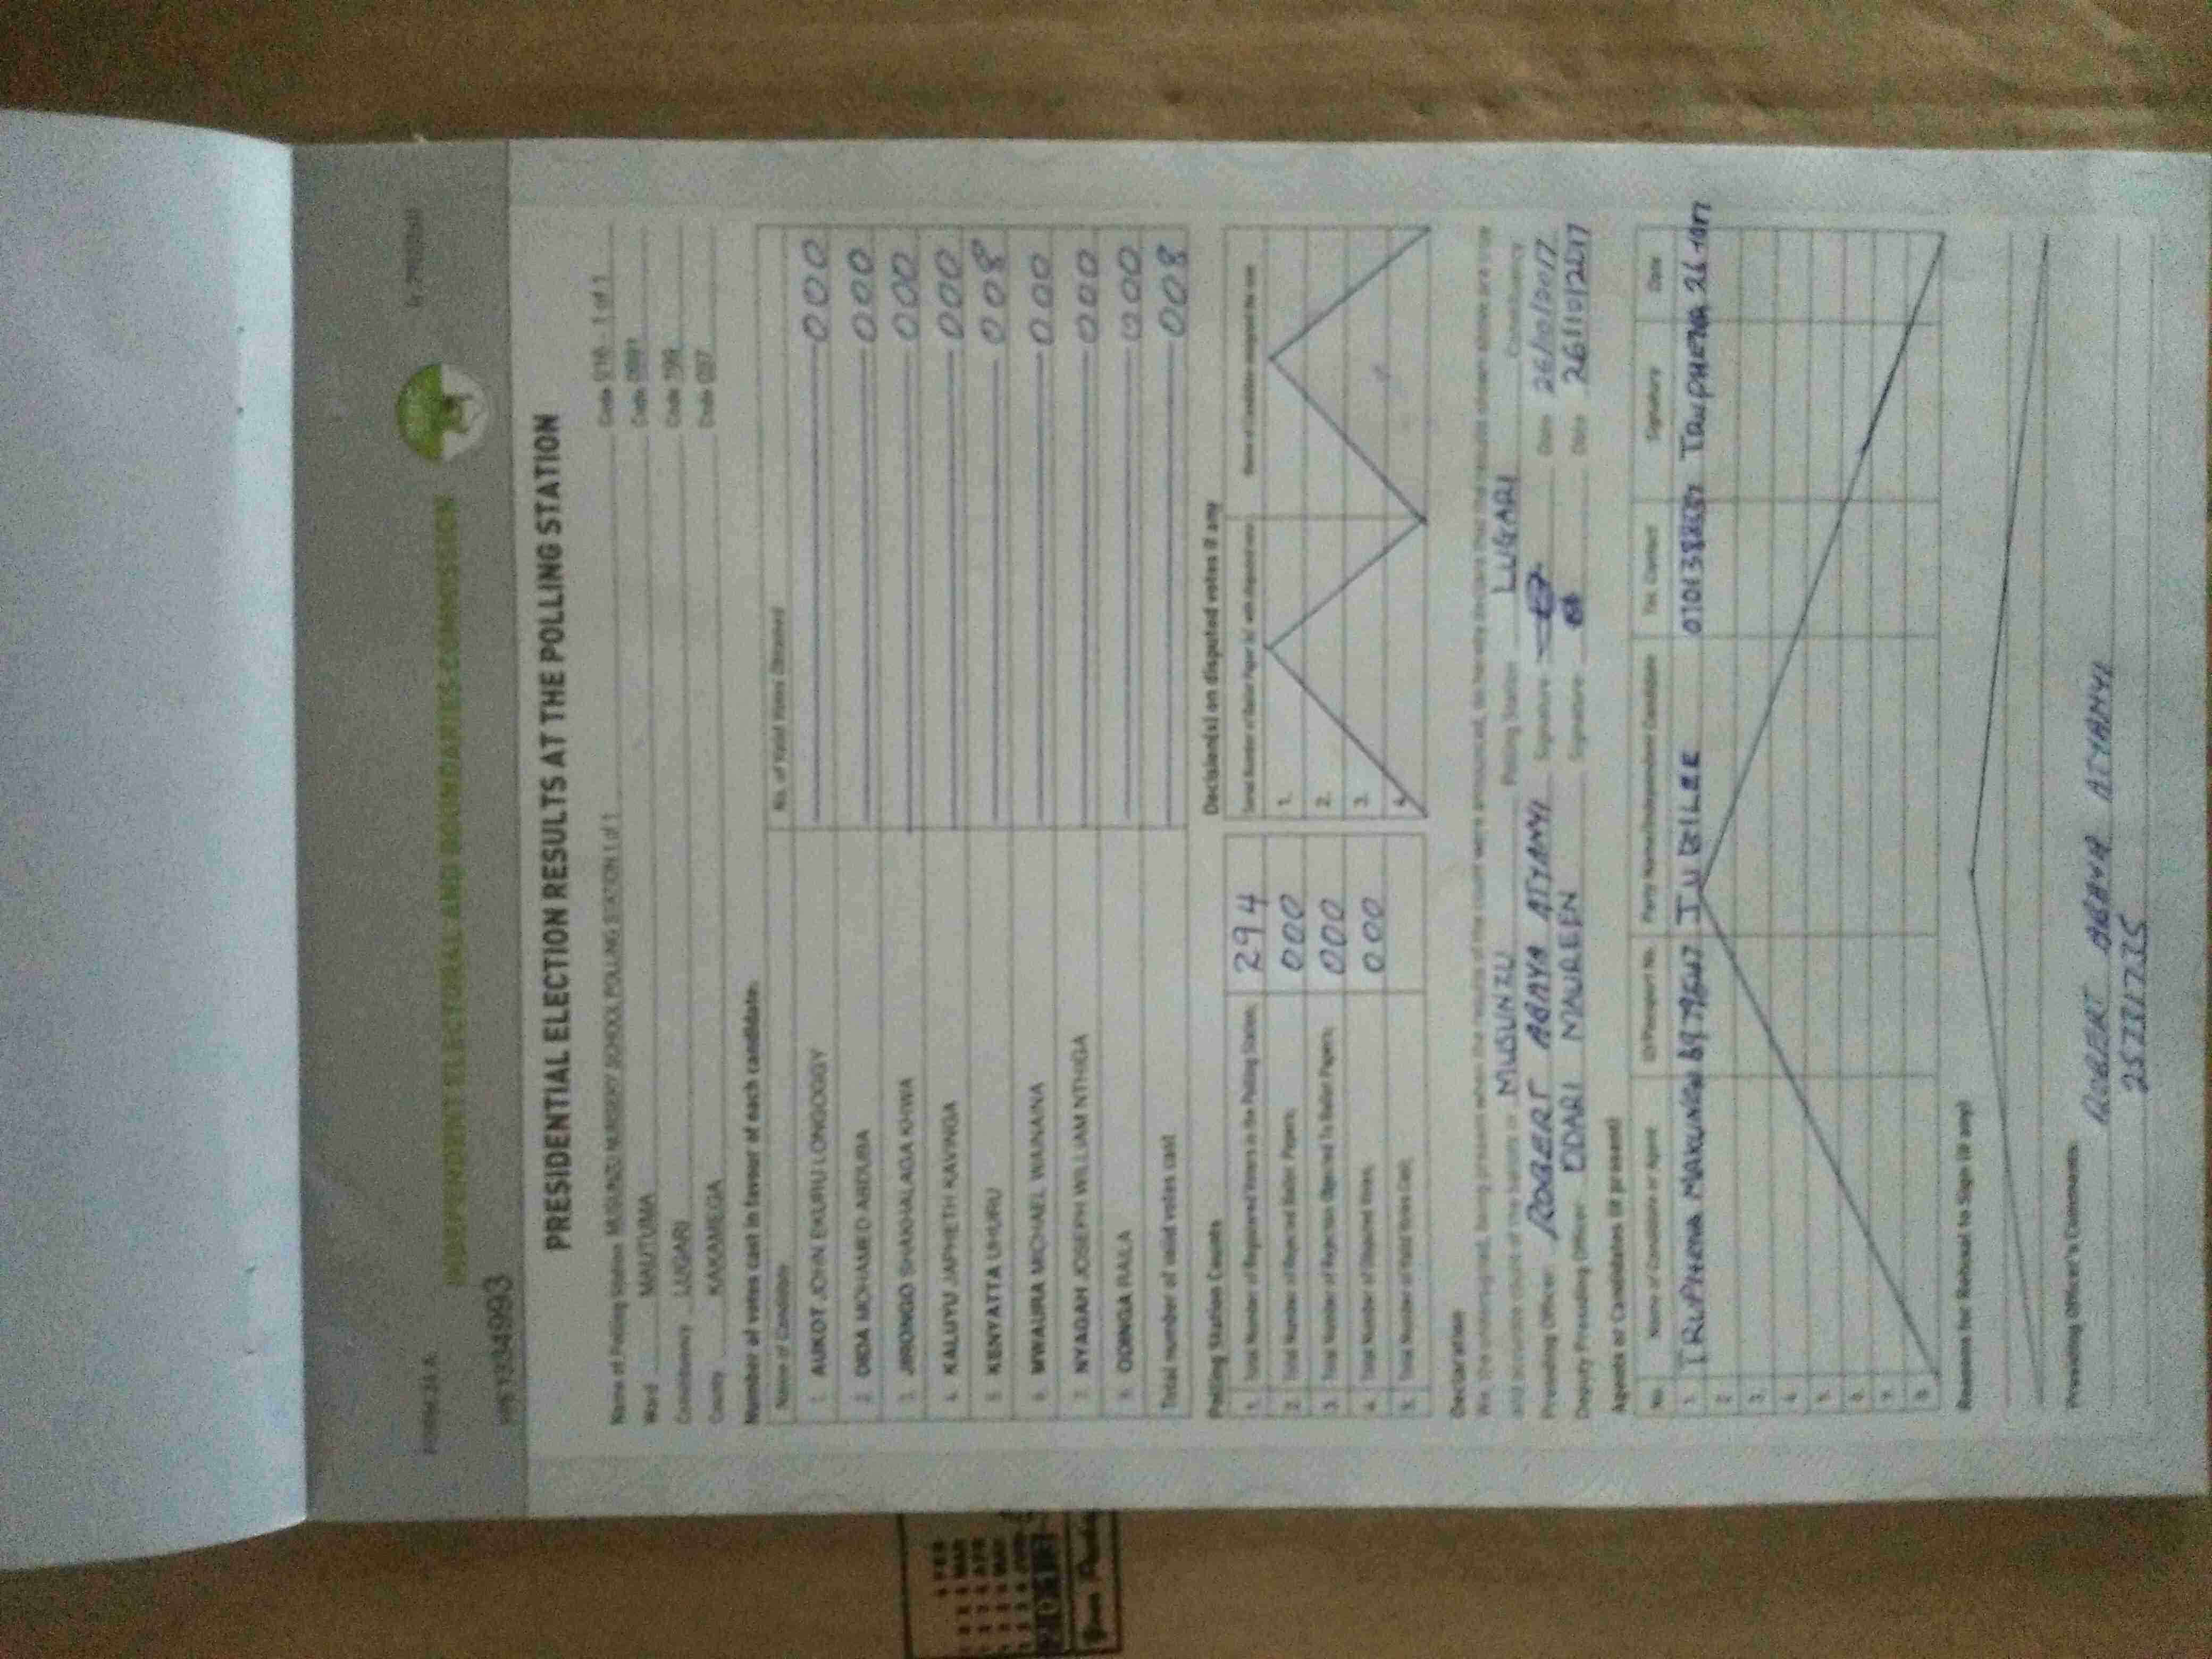 FORM 34 A
INDEPENDENT ELECTORAL AND BOUNDARIES COMMISSION
PRESIDENTIAL ELECTION RESULTS AT THE POLLING STATION
Name of Polling Station MUSUNZU NURSERY SCHOOL POLLING STATION 1 of 1 Code 016 - 1 of 1
Ward MAUTUMA Code
Constituency LUGARI Code
County KAKAMEGA Code 037
Number of votes cast in favour of each candidate:
Name of Candidate No. of Valid Votes Obtained
1 AUKOT JOHN EKURU LONGOGGY 000
2 DIDA MOHAMED ABDUBA 000
3 JIRONGO SHAKHALAGA KHWA 000
4 KALUYU JAPHETH KAVINGA 000
5 KENYATTA UHURU 008
6 MWAURA MICHAEL WAINAINA 000
7 NYAGAH JOSEPH WILLIAM NTHIGA 000
8 ODINGA RAILA 000
Total number of valid votes cast 008
Polling Station Counts
1. Total Number of Registered Voters in the Polling Station 294
2. Total Number of Rejected Ballot Papers 000
3. Total Number of Rejection Objected To Ballot Papers 000
4. Total Number of Disputed Votes 000
5. Total Number of Valid Votes Cast
Decision(s) on disputed votes if any
1.
2.
3.
4.
Declaration
We, the undersigned, being present when the results of the count were announced, do hereby declare that the results shown above are true
and accurate count of the ballots in MUSUNZU Polling Station LUGARI Constituency
Presiding Officer ROBERT ABAYA ATYAMI Signature Date 26/10/2017
Deputy Presiding Officer ODARI MAUREEN Signature Date 26/10/2017
Agents or Candidates (if present)
No. Name of Candidate or Agent ID/Passport No. Party Name/Independent Candidate Tel. Contact Signature Date
1 JUBILEE
2
3
4
5
6
7
8
Reasons for Refusal to Sign (if any)
Presiding Officer's Comments
ROBERT ABAYA ATYAMI